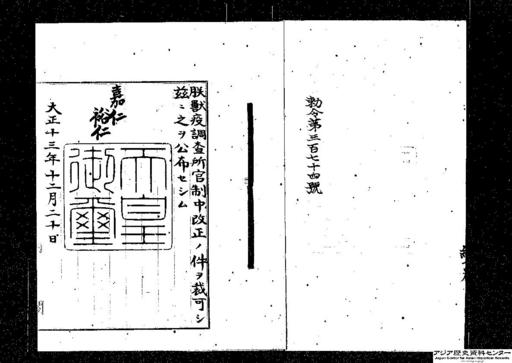 勅令第三百七十四號
朕獸疫調査所官制中改正ノ件ヲ裁可シ
茲ニ之ヲ公布セシム
嘉仁
裕仁
天皇
御璽
大正十三年十二月二十日
アジア歴史資料センター
Japan Center for Asian Historical Records